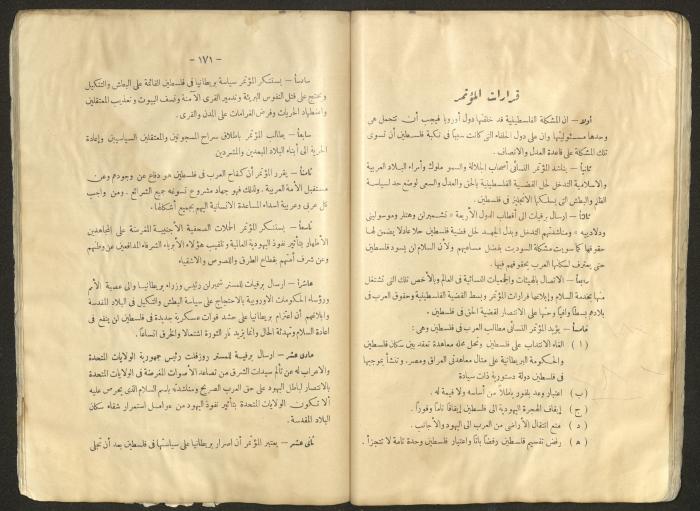 قرارات المؤتمر
أولا — ان المشكلة الفلسطينية قد خلقتها دول أوروبا فيجب أن تتحمل هي
وحدها مسئوليتها وان على دول الحلفاء التي كانت سبباً في نكبة فلسطين أن تسوي
تلك المشكلة على قاعدة العدل والانصاف .
ثانياً — يناشد المؤتمر النسائي أصحاب الجلالة والسمو ملوك وأمراء البلاد العربية
والاسلامية التدخل لحل القضية الفلسطينية بالحق والعدل والسعي لوضع حد لسياسة
الظلم والبطش التي يسلكها الانجليز في فلسطين .
ثالثاً — ارسال برقيات الى أقطاب الدول الأربعة « تشمبرلن وهتلر وموسوليني
ودلادييه » ومناشدتهم التدخل وبذل الجهد لحل قضية فلسطين حلا عادلا يضمن لها
حقوقها كما سويت مشكلة السوديت بفضل مساعيهم ولأن السلام لن يسود فلسطين
حتى يعترف لسكانها العرب بحقوقهم فيها .
رابعاً — الاتصال بالهيئات والجمعيات النسائية في العالم وبالأخص تلك التي تشتغل
منها بخدمة السلام وإبلاغها قرارات المؤتمر وبسط القضية الفلسطينية وحقوق العرب في
بلادهم بسطاً وافياً وحثها على الانتصار لقضية الحق في فلسطين .
خامساً — يؤيد المؤتمر النسائي مطالب العرب في فلسطين وهي :
( ا ) الغاء الانتداب على فلسطين وتحل محله معاهدة تعقد بين سكان فلسطين
والحكومة البريطانية على مثال معاهدتي العراق ومصر . وتنشأ بموجبها
في فلسطين دولة دستورية ذات سيادة
( ب ) اعتبار وعد بلفور باطلاً من أساسه ولا قيمة له .
( ج ) إيقاف الهجرة اليهودية الى فلسطين إيقافاً تاماً وفوراً .
( د ) منع انتقال الأراضي من العرب الى اليهود والأجانب .
( ه ) رفض تقسيم فلسطين رفضاً باتاً واعتبار فلسطين وحدة تامة لا تتجزأ .
— ١٧١ —
سادساً — يستنكر المؤتمر سياسة بريطانيا في فلسطين القائمة على البطش والتنكيل
ويحتج على قتل النفوس البريئة وتدمير القرى الآمنة ونسف البيوت وتعذيب المعتقلين
واضطهاد الحريات وفرض الغرامات على المدن والقرى .
سابعاً — يطالب المؤتمر باطلاق سراح المسجونين والمعتقلين السياسيين وإعادة
الحرية الى أبناء البلاد المبعدين والمشردين
ثامناً — يقرر المؤتمر أن كفاح العرب في فلسطين هو دفاع عن وجودهم وعن
مستقبل الأمة العربية . ولذلك فهو جهاد مشروع تسوغه جميع الشرائع . ومن واجب
كل عربي وعربية اسداء المساعدة الانسانية اليهم بجميع أشكالها .
تاسعاً — يستنكر المؤتمر الحملات الصحفية الأجنبية المغرضة على المجاهدين
الأطهار بتأثير نفوذ اليهودية العالمية وتلقيب هؤلاء الأبرياء الشرفاء المدافعين عن وطنهم
وعن شرف أمتهم بقطاع الطرق واللصوص والأشقياء
عاشراً — ارسال برقيات للمستر شمبرلن رئيس وزراء بريطانيا والى عصبة الأمم
ورؤساء الحكومات الأوروبية بالاحتجاج على سياسة البطش والتنكيل في البلاد المقدسة
وابلاغهم أن اعتزام بريطانيا على حشد قوات عسكرية جديدة في فلسطين لن ينفع في
اعادة السلام وتهدئة الحال وانما يزيد نار الثورة اشتعالا والخرق اتساعاً .
حادي عشر — ارسال برقية للمستر روزفلت رئيس جمهورية الولايات المتحدة
والاعراب له عن تألم سيدات الشرق من تصاعد الأصوات المغرضة في الولايات المتحدة
بالانتصار لباطل اليهود على حق العرب الصريح ومناشدته باسم السلام الذي يحرص عليه
ألا تكون الولايات المتحدة بتأثير نفوذ اليهود من عوامل استمرار شقاء سكان
البلاد المقدسة .
ثاني عشر — يعتبر المؤتمر أن اصرار بريطانيا على سياستها في فلسطين بعد أن تجلى